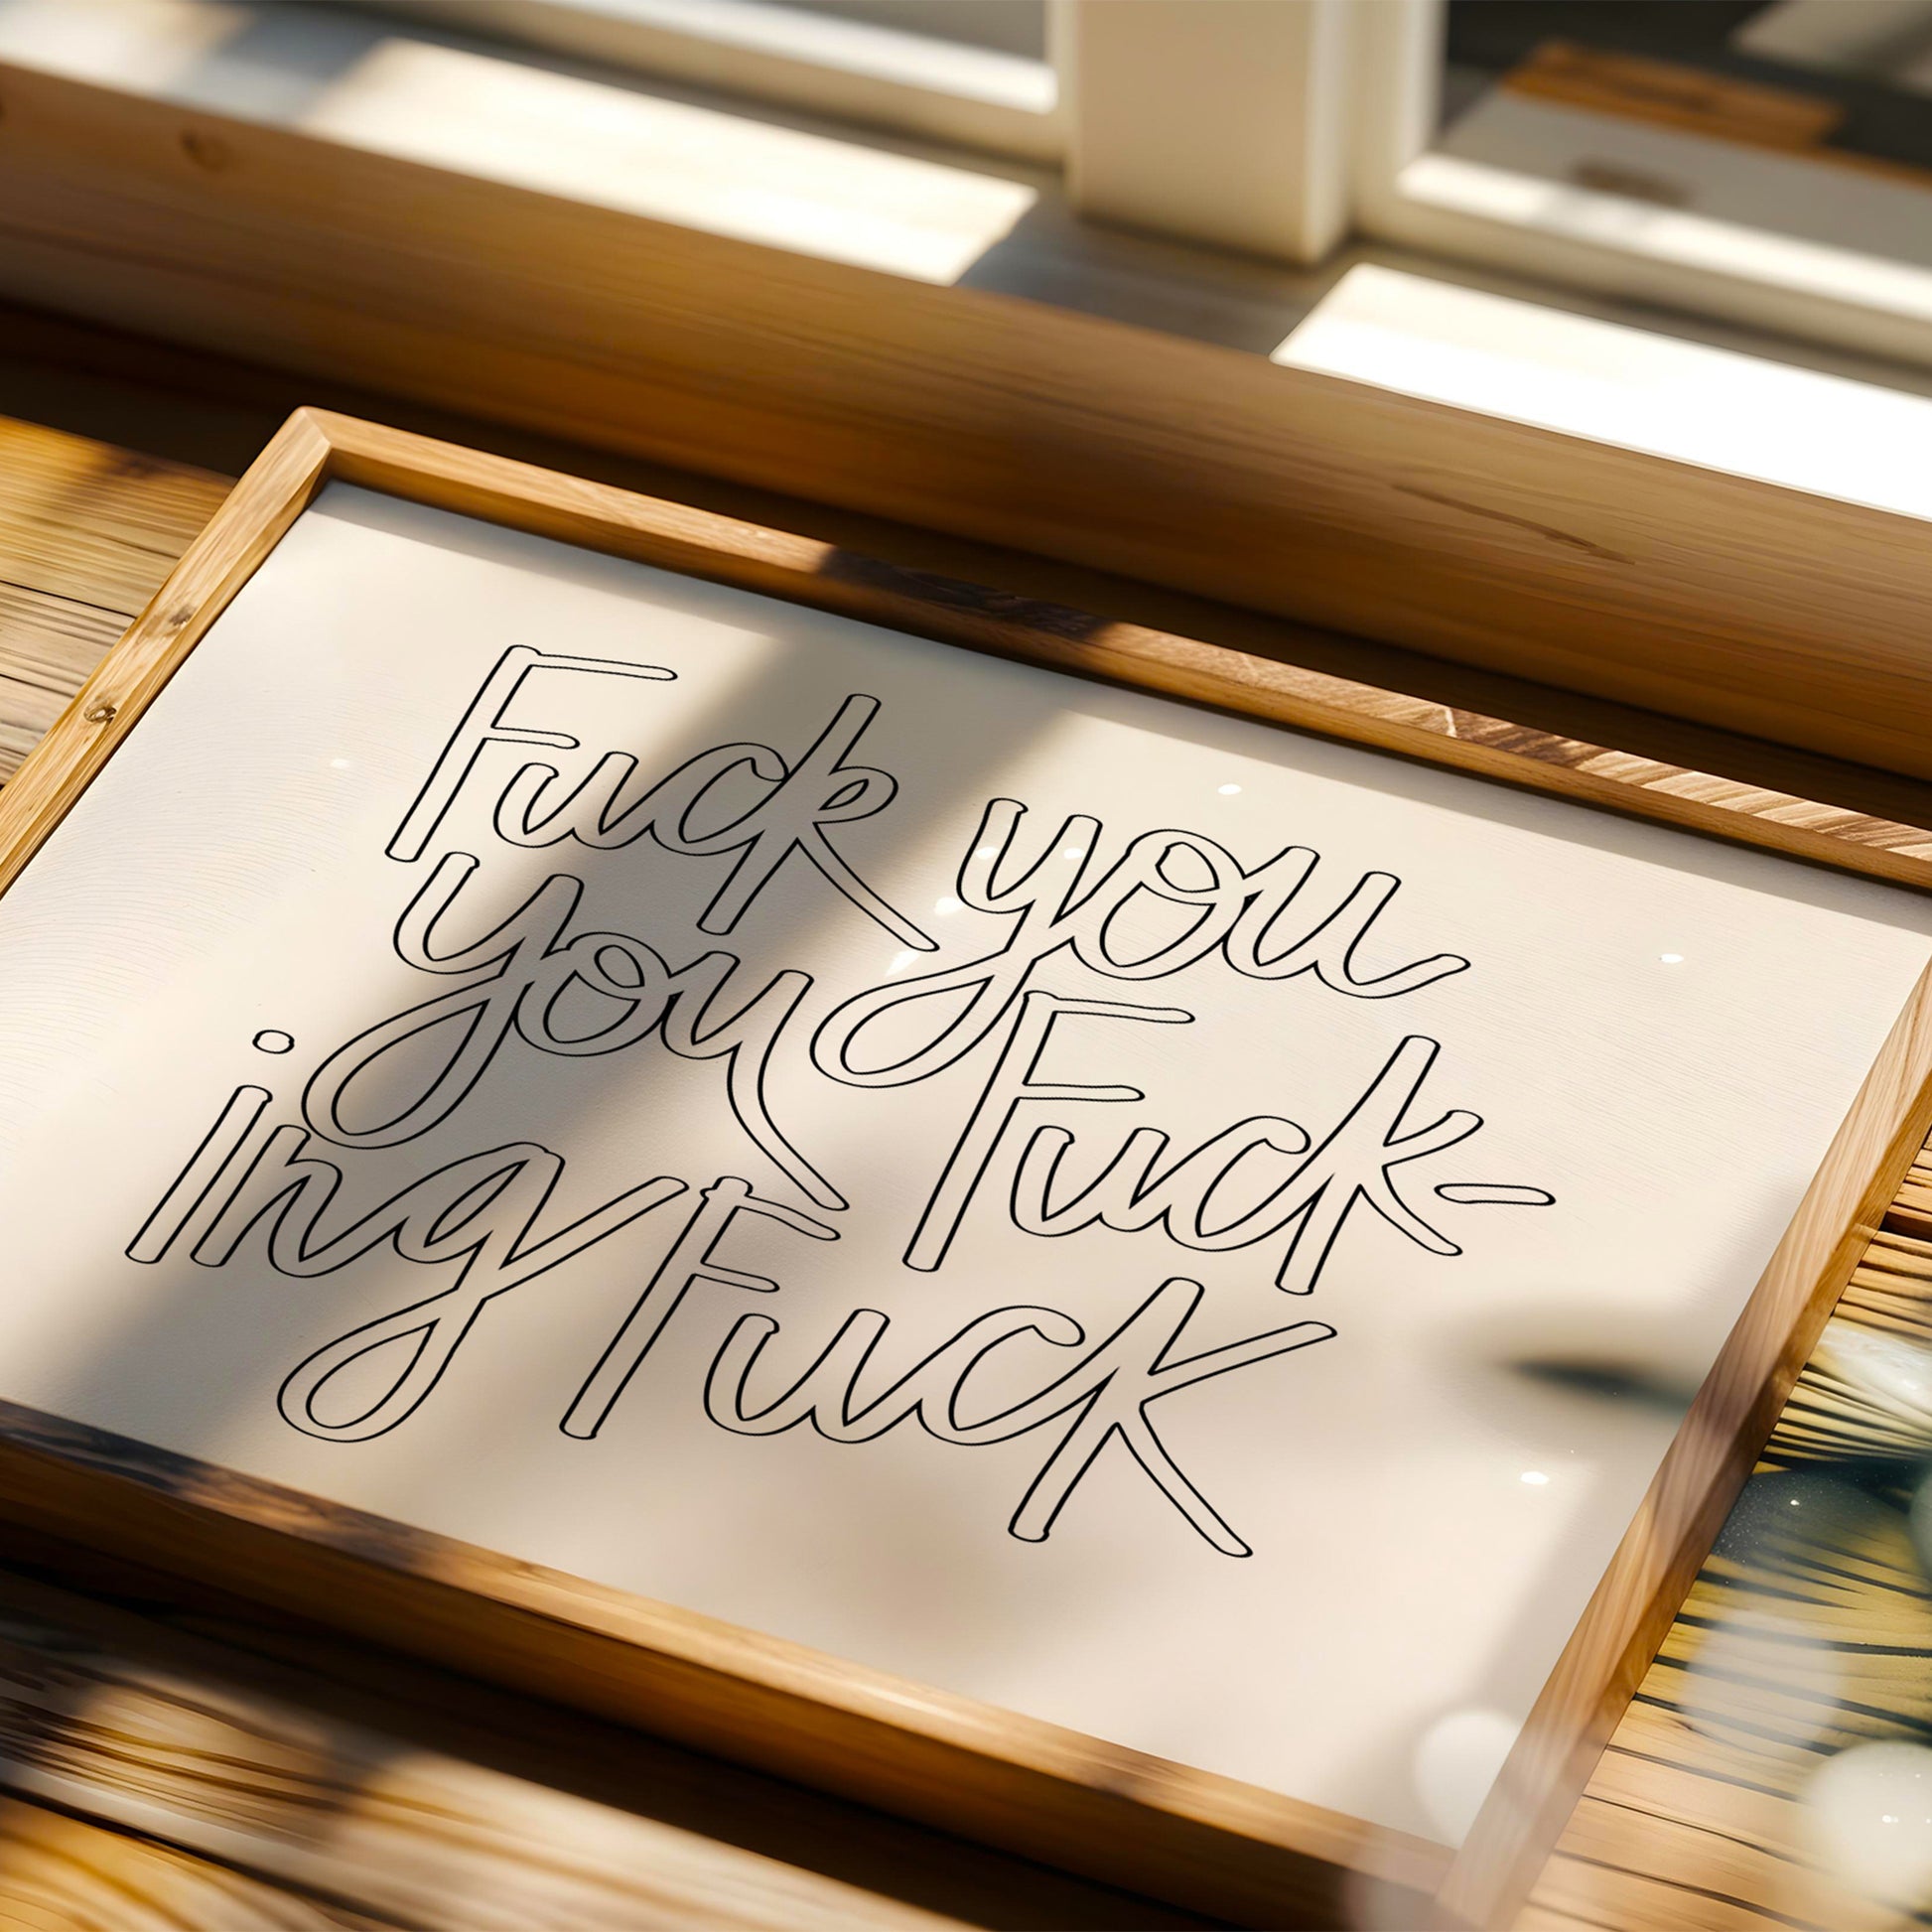 Fuck you
you Fuck-
ing Fuck